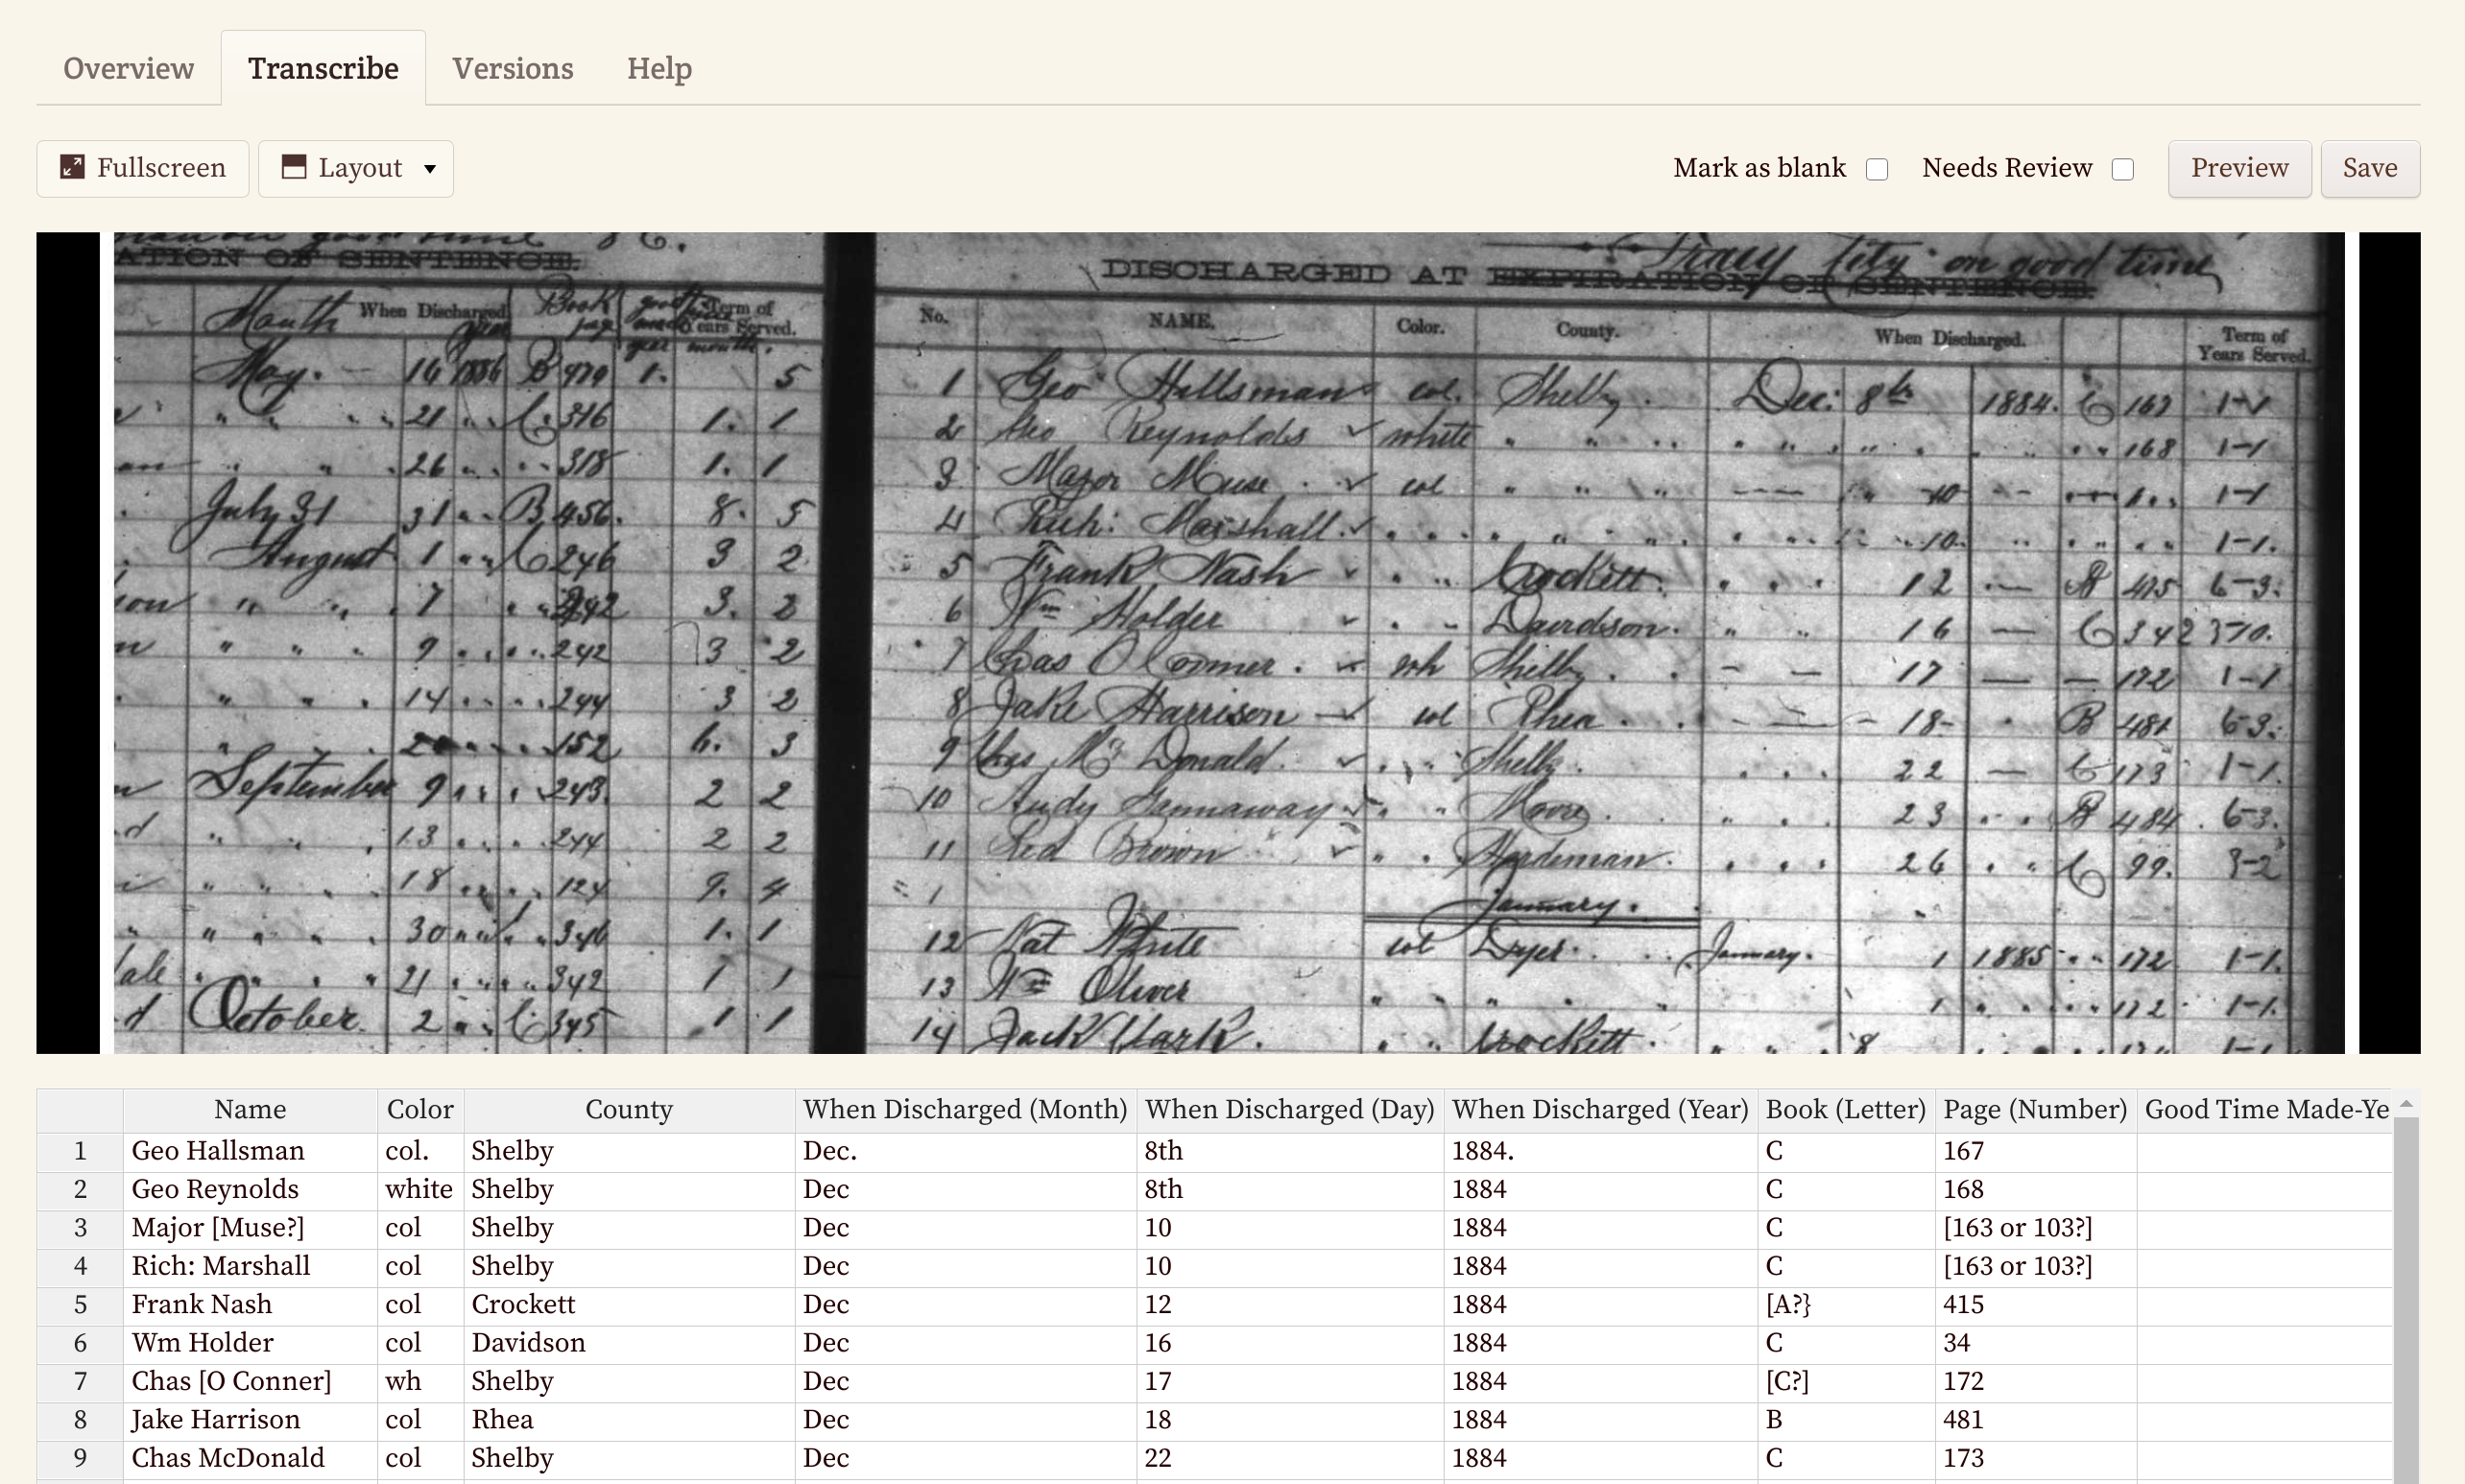 Overview Transcribe Versions Help
Fullscreen Layout Mark as blank Needs Review Preview Save
good time &C.
ATION OF SENTENCE.
Month When Discharged year Book page good time made Term of Years Served.
year month.
May. 16 1886 B 479 1. 5
" " " " 21 " " C. 316 1. 1
an " " " 26 " " " " 318 1. 1
July 31 31 " " B 456. 8. 5
August 1 " " C 246 3 2
" " " 7 " " 242 3. 2
" " " 9 " " " " 242 3 2
" " " 14 " " " " 244 3 2
" " 152 6. 3
September 9 " " " " 243. 2 2
d " " " 13 " " " 244 2 2
" " " 18 " " " 124 9. 4
" " " " " 30 " " " 346 1. 1
dale " " " " 21 " " " " 342 1 1
d October. 2 " " C 345 1 1
Tracy City on good time
DISCHARGED AT EXPIRATION OF SENTENCE.
No. NAME. Color. County. When Discharged. Term of Years Served.
1 Geo Hillsman col. Shelby. Dec: 8th 1884. C 167 1-1
2 Geo Reynolds ✓ white " " " " " " " " " " 168 1-1
3 Major Muse. ✓ col " " " " — — " 10 — — 1-1
4 Rich: Marshall. ✓ " " " " " " " " " " 10. " " " " " " 1-1.
5 Frank Nash ✓ " " Crockett. " " " 12 — 415 6-3.
6 Wm Holder ✓ " " Davidson. " " 16 — C 342 3-10.
7 Chas O Conner. ✓ wh Shelby. — — 17 — — 172 1-1
8 Jake Harrison ✓ col Rhea. — — 18- " B 481 6-3.
9 Chas McDonald. ✓ " " Shelby. " " " 22 — C 173 1-1.
10 Andy Gannaway ✓ " " Moore. " " " 23 " " 484. 6-3.
11 Brown ✓ " " Hardeman. " " " 26 " " C 99. 3-2
January.
12 Nat White col Dyer. January. 1 1885 " " 172 1-1.
13 Wm Oliver " " " " " 1 " " " " 172 1-1.
14 Jack Clark. " " Crockett. " " " 8
Name Color County When Discharged (Month) When Discharged (Day) When Discharged (Year) Book (Letter) Page (Number) Good Time Made-Ye
1 Geo Hallsman col. Shelby Dec. 8th 1884. C 167
2 Geo Reynolds white Shelby Dec 8th 1884 C 168
3 Major [Muse?] col Shelby Dec 10 1884 C [163 or 103?]
4 Rich: Marshall col Shelby Dec 10 1884 C [163 or 103?]
5 Frank Nash col Crockett Dec 12 1884 [A?} 415
6 Wm Holder col Davidson Dec 16 1884 C 34
7 Chas [O Conner] wh Shelby Dec 17 1884 [C?] 172
8 Jake Harrison col Rhea Dec 18 1884 B 481
9 Chas McDonald col Shelby Dec 22 1884 C 173